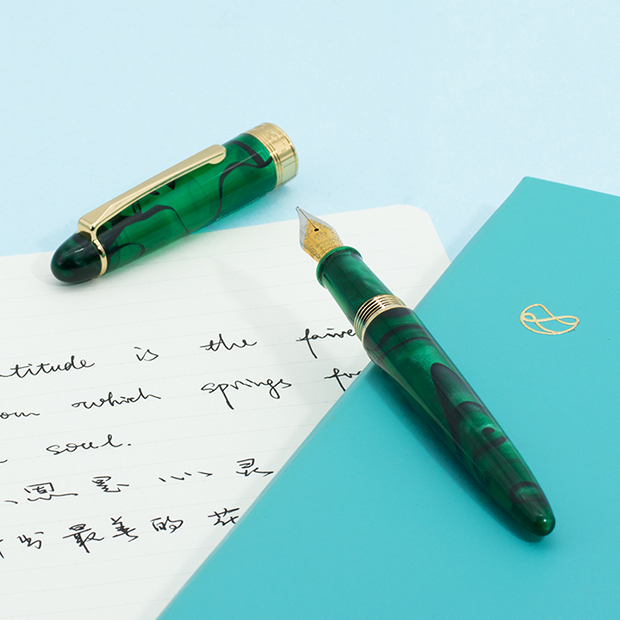 titude is the faire
om which springs fr
soul.
恩是心灵
出最美的花